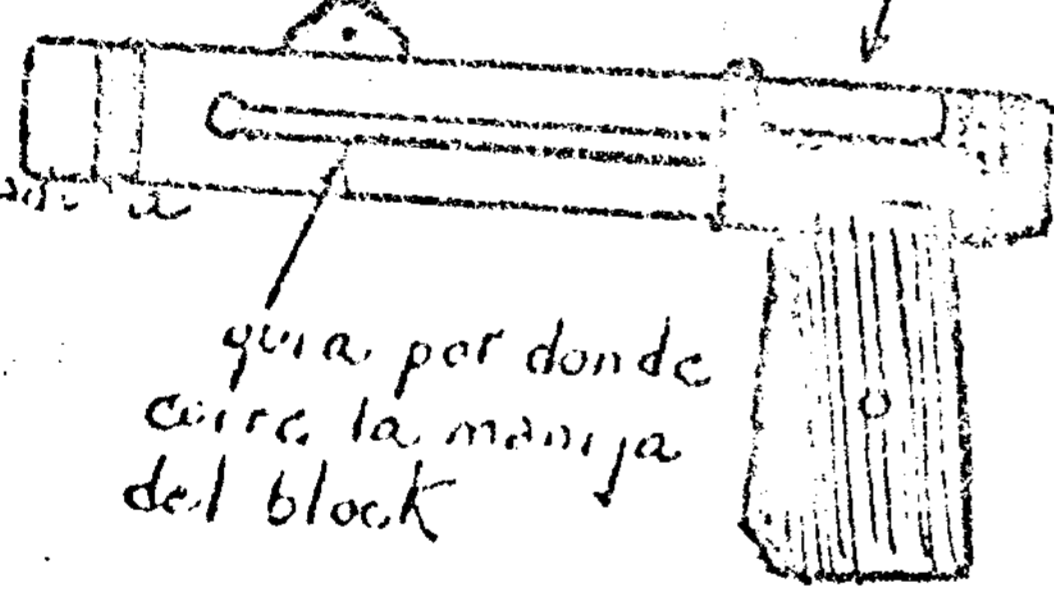 guia por donde
corre la manija
del block